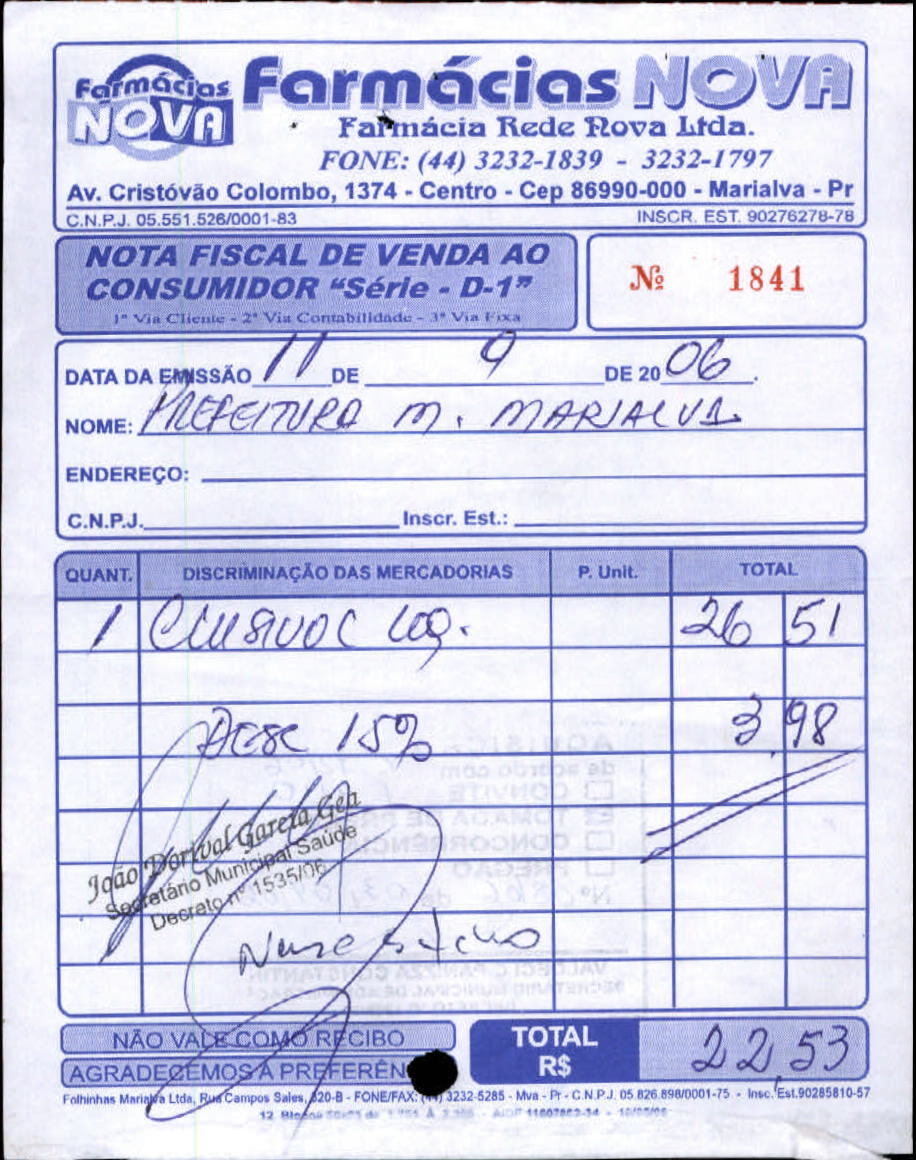 Farmácias
NOVA
Farmácias NOVA
Farmácia Rede Nova Ltda.
FONE: (44) 3232-1839 - 3232-1797
Av. Cristóvão Colombo, 1374 - Centro - Cep 86990-000 - Marialva - Pr
C.N.P.J. 05.551.526/0001-83 INSCR. EST. 90276278-78
NOTA FISCAL DE VENDA AO
CONSUMIDOR “Série - D-1”
1ª Via Cliente - 2ª Via Contabilidade - 3ª Via Fixa
Nº 1841
DATA DA EMISSÃO 11 DE 9 DE 2006.
NOME: PREFEITURA M. MARIALVA
ENDEREÇO:
C.N.P.J. Inscr. Est.:
QUANT. DISCRIMINAÇÃO DAS MERCADORIAS P. Unit. TOTAL
1 26 51
DESC 15% 3,98
João Dorival Garcia Geh
Secretário Municipal Saúde
Decreto nº 1535/06
NÃO VALE COMO RECIBO
AGRADECEMOS A PREFERÊN
TOTAL
R$ 22,53
Folhinhas Marialva Ltda, Rua Campos Sales, 320-B - FONE/FAX: (44) 3232-5285 - Mva - Pr - C.N.P.J. 05.826.898/0001-75 - Insc. Est.90285810-57